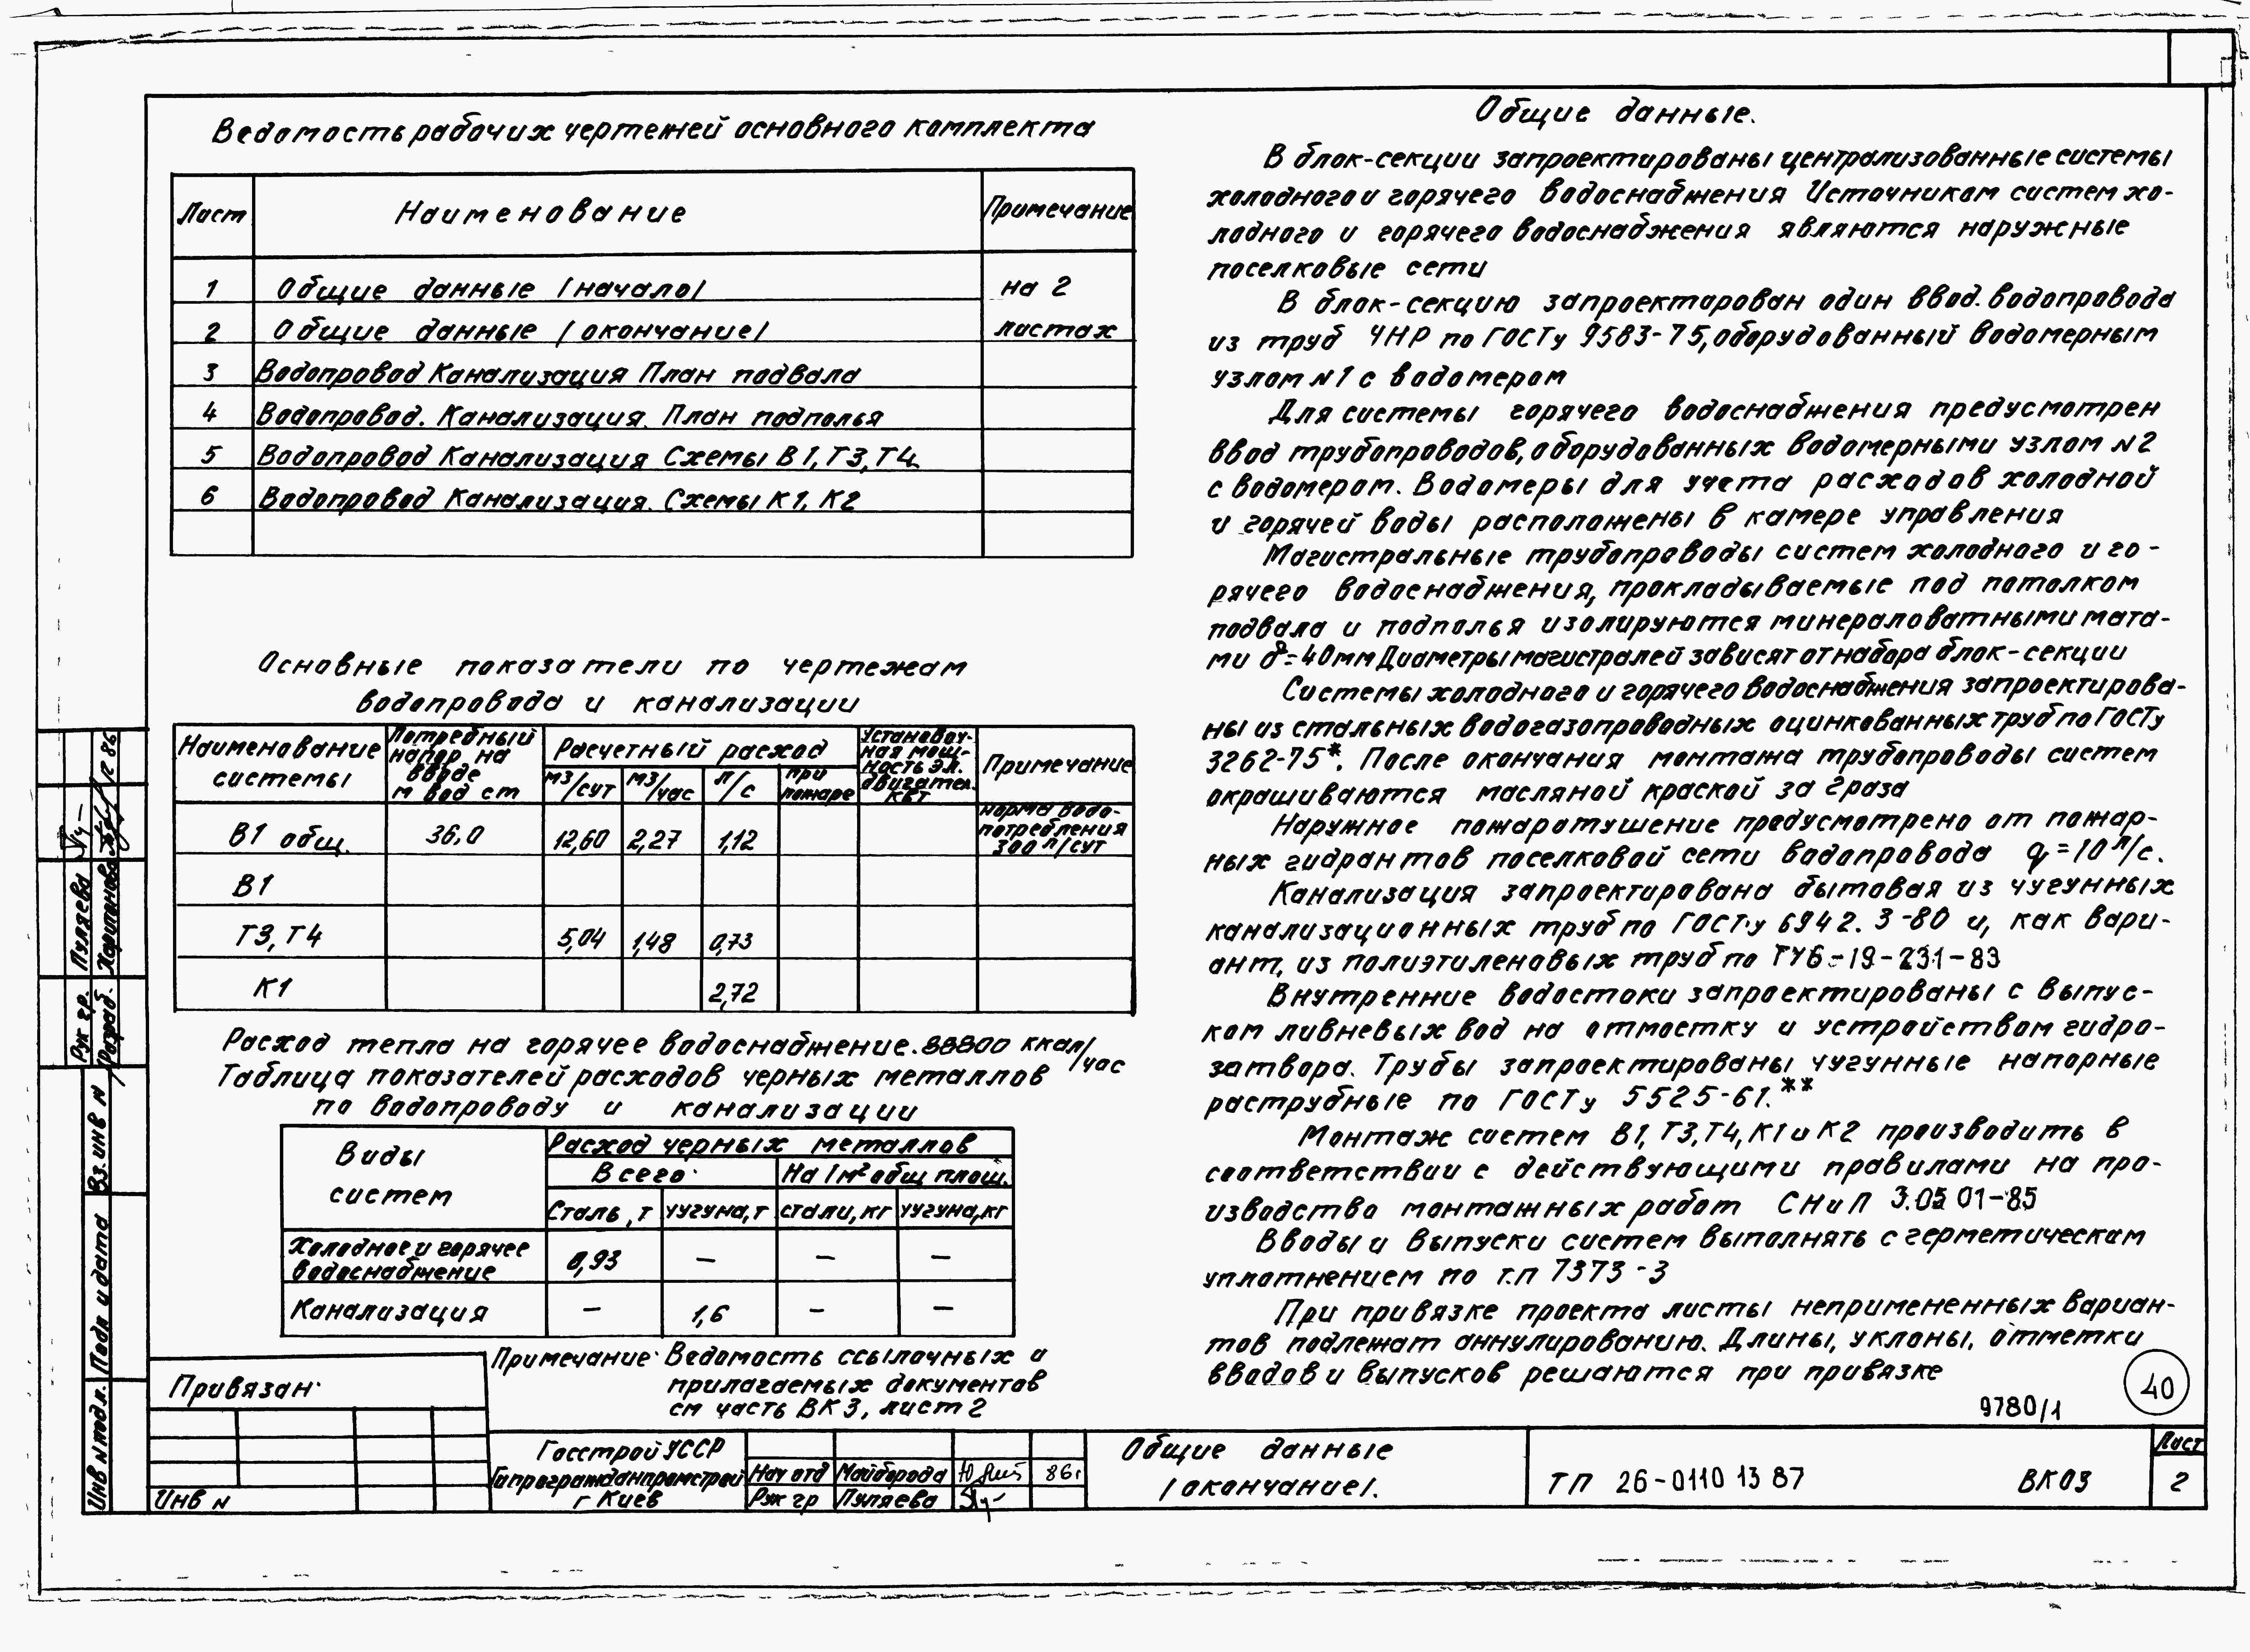 Ведомость рабочих чертежей основного комплекта
Лист Наименование Примечание
1 Общие данные /начало/ на 2
2 Общие данные /окончание/ листах
3 Водопровод Канализация План подвала
4 Водопровод. Канализация. План подполья
5 Водопровод Канализация Схемы В1, Т3, Т4
6 Водопровод Канализация. Схемы К1, К2
Основные показатели по чертежам
водопровода и канализации
Наименование системы
Потребный напор на вводе м вод ст
Расчетный расход
м3/сут м3/час л/с при пожаре
Установоч-
ная мощ-
ность эл.
двигател.
кВт
Примечание
В1 общ. 36,0 12,60 2,27 1,12 норма водо-
потребления
300 л/сут
В1
Т3, Т4 5,04 1,48 0,73
К1 2,72
Расход тепла на горячее водоснабжение. 88800 ккал/час
Таблица показателей расходов черных металлов
по водопроводу и канализации
Виды систем
Расход черных металлов
Всего На 1м² общ площ.
Сталь, т чугуна, т стали, кг чугуна, кг
Холодное и горячее
водоснабжение 0,93 — — —
Канализация — 1,6 — —
Примечание: Ведомость ссылочных и
прилагаемых документов
см часть ВК3, лист 2
Общие данные.
В блок-секции запроектированы централизованные системы
холодного и горячего водоснабжения Источником систем хо-
лодного и горячего водоснабжения являются наружные
поселковые сети
В блок-секцию запроектирован один ввод. водопровода
из труб ЧНР по ГОСТу 9583-75, оборудованный водомерным
узлом N1 с водомером
Для системы горячего водоснабжения предусмотрен
ввод трубопроводов, оборудованных водомерными узлом N2
с водомером. Водомеры для учета расходов холодной
и горячей воды расположены в камере управления
Магистральные трубопроводы систем холодного и го-
рячего водоснабжения, прокладываемые под потолком
подвала и подполья изолируются минераловатными мата-
ми δ=40мм Диаметры магистралей зависят от набора блок-секции
Системы холодного и горячего водоснабжения запроектирова-
ны из стальных водогазопроводных оцинкованных труб по ГОСТу
3262-75*. После окончания монтажа трубопроводы систем
окрашиваются масляной краской за 2 раза
Наружное пожаротушение предусмотрено от пожар-
ных гидрантов поселковой сети водопровода q=10 л/с.
Канализация запроектирована бытовая из чугунных
канализационных труб по ГОСТу 6942.3-80 и, как вари-
ант, из полиэтиленовых труб по ТУ6-19-231-83
Внутренние водостоки запроектированы с выпус-
ком ливневых вод на отмостку и устройством гидро-
затвора. Трубы запроектированы чугунные напорные
раструбные по ГОСТу 5525-61.**
Монтаж систем В1, Т3, Т4, К1 и К2 производить в
соответствии с действующими правилами на про-
изводство монтажных работ СНиП 3.05 01-85
Вводы и выпуски систем выполнять с герметическам
уплотнением по т.п 7373-3
При привязке проекта листы непримененных вариан-
тов подлежат аннулированию. Длины, уклоны, отметки
вводов и выпусков решаются при привязке
40
9780/1
Руж гр. Пуляева
Разраб. 12 86
Инв N подл. Подп и дата Вз. инв N
Привязан:
Инв N
Госстрой УССР
Гипрогражданпромстрой
г Киев
Нач отд Майборода 86г
Руж гр Пуляева
Общие данные
/окончание/.
ТП 26-0110 13 87 ВК03
Лист
2